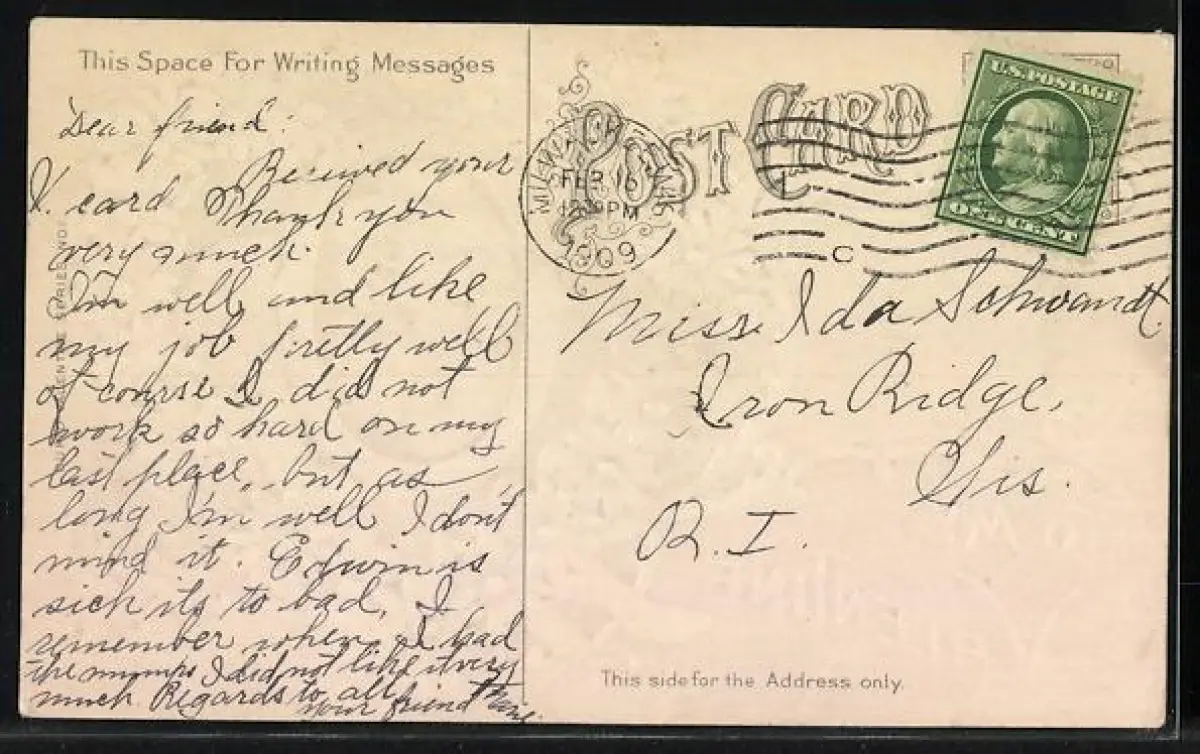 This Space For Writing Messages
Dear friend:
Recived your
V. card Thank you
very much.
I'm well and like
my job pretty well
of course I did not
work so hard on my
last place, but as
long I'm well I don't
mind it. Edwin is
sick its to bad, I
remember when I had
the mumps I did not like it very
much Regards to all
your friend
POST CARD
FEB 16
12 PM
1909
C
U.S. POSTAGE
ONE CENT
Miss Ida Schwandt
Iron Ridge,
Wis.
R. I.
This side for the Address only.